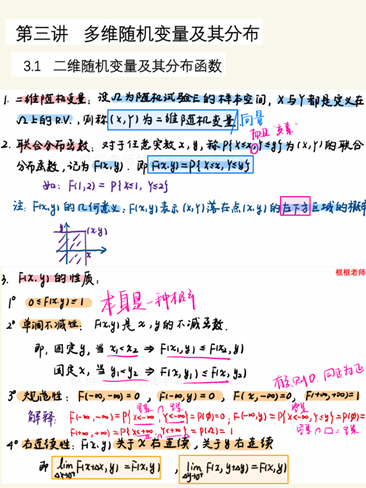 第三讲 多维随机变量及其分布
3.1 二维随机变量及其分布函数
1. 二维随机变量: 设Ω为随机试验E的样本空间, X与Y都是定义在
Ω上的R.V., 则称(X,Y)为二维随机变量/向量
而且
2. 联合分布函数: 对于任意实数x,y, 称P{X≤x,Y≤y}为(X,Y)的联合
分布函数, 记为F(x,y). 即 F(x,y)=P{X≤x,Y≤y}
如: F(1,2) = P{X≤1, Y≤2}
注: F(x,y)的几何意义: F(x,y)表示(X,Y)落在点(x,y)的左下方区域的概率
y (x,y)
x
框框老师
3. F(x,y)的性质:
1° 0≤F(x,y)≤1 本身是一种概率
2° 单调不减性: F(x,y)是x,y的不减函数.
即, 固定y, 当x₁<x₂ ⇒ F(x₁,y)≤F(x₂,y)
固定x, 当y₁<y₂ ⇒ F(x,y₁)≤F(x,y₂)
3° 规范性: F(-∞,-∞)=0, F(-∞,y)=0, F(x,-∞)=0, F(+∞,+∞)=1
解释: F(-∞,-∞)=P{X<-∞,Y<-∞}=P(∅)=0, F(-∞,y)=P{X<-∞,Y≤y}=P(∅)=0
F(+∞,+∞)=P{X<+∞,Y<+∞}=P(Ω)=1
4° 右连续性: F(x,y)关于x右连续, 关于y右连续
即 lim Δx→0⁺ F(x+Δx,y)=F(x,y), lim Δy→0⁺ F(x,y+Δy)=F(x,y)